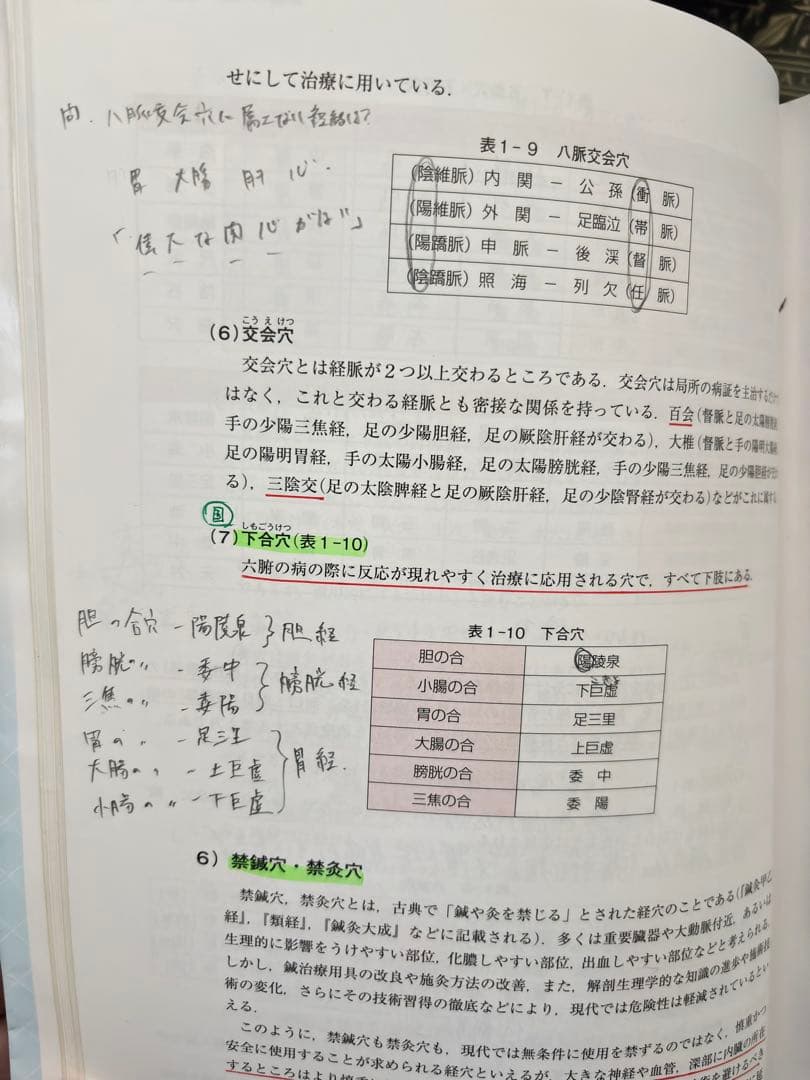 せにして治療に用いている.
問. 八脈交会穴に属さない経絡は?
胃 大腸 肝 心.
表1-9 八脈交会穴
(陰維脈) 内 関 - 公 孫 (衝 脈)
(陽維脈) 外 関 - 足臨泣 (帯 脈)
(陽蹻脈) 申 脈 - 後 渓 (督 脈)
(陰蹻脈) 照 海 - 列 欠 (任 脈)
こう え けつ
(6) 交会穴
交会穴とは経脈が2つ以上交わるところである. 交会穴は局所の病証を主治するだけで
はなく, これと交わる経脈とも密接な関係を持っている. 百会(督脈と足の太陽膀胱経,
手の少陽三焦経, 足の少陽胆経, 足の厥陰肝経が交わる), 大椎(督脈と手の陽明大腸経,
足の陽明胃経, 手の太陽小腸経, 足の太陽膀胱経, 手の少陽三焦経, 足の少陽胆経が交わ
る), 三陰交(足の太陰脾経と足の厥陰肝経, 足の少陰腎経が交わる)などがこれに属する.
国
しもごうけつ
(7) 下合穴(表1-10)
六腑の病の際に反応が現れやすく治療に応用される穴で, すべて下肢にある.
胆の合穴 - 陽陵泉 } 胆経
膀胱の〃 - 委中
三焦の〃 - 委陽 } 膀胱経
胃の〃 - 足三里
大腸の〃 - 上巨虚 } 胃経.
小腸の〃 - 下巨虚
表1-10 下合穴
胆の合 陽陵泉
小腸の合 下巨虚
胃の合 足三里
大腸の合 上巨虚
膀胱の合 委 中
三焦の合 委 陽
6) 禁鍼穴・禁灸穴
禁鍼穴, 禁灸穴とは, 古典で「鍼や灸を禁じる」とされた経穴のことである(『鍼灸甲乙
経』,『類経』,『鍼灸大成』などに記載される). 多くは重要臓器や大動脈付近, あるいは
生理的に影響をうけやすい部位, 化膿しやすい部位, 出血しやすい部位などと考えられる.
しかし, 鍼治療用具の改良や施灸方法の改善, また, 解剖生理学的な知識の進歩や施術技
術の変化, さらにその技術習得の徹底などにより, 現代では危険性は軽減されているとい
える.
このように, 禁鍼穴も禁灸穴も, 現代では無条件に使用を禁ずるのではなく, 慎重かつ
安全に使用することが求められる経穴といえるが, 大きな神経や血管, 深部に内臓の所在
するところはより慎重に
を避けるべき